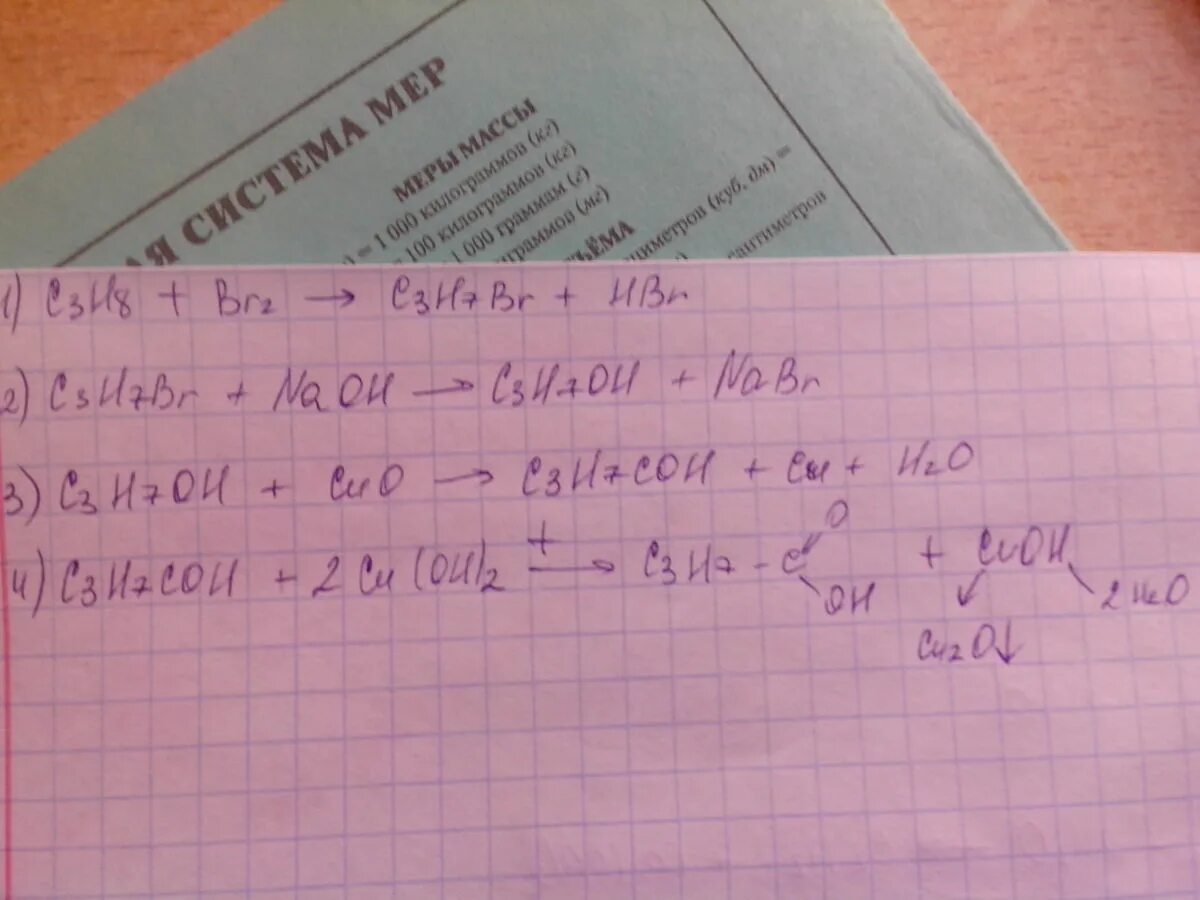 АЯ СИСТЕМА МЕР
МЕРЫ МАССЫ
) = 1 000 килограммов (кг)
= 100 килограммов (кг)
1 000 граммам (г)
играммов (мг)
ЪЁМА
циметров (куб, дм) =
сантиметров
1) C3H8 + Br2 → C3H7Br + HBr
2) C3H7Br + NaOH → C3H7OH + NaBr
3) C3H7OH + CuO → C3H7COH + Cu + H2O
4) C3H7COH + 2Cu(OH)2 → C3H7-C + CuOH
O
OH
2H2O
Cu2O↓